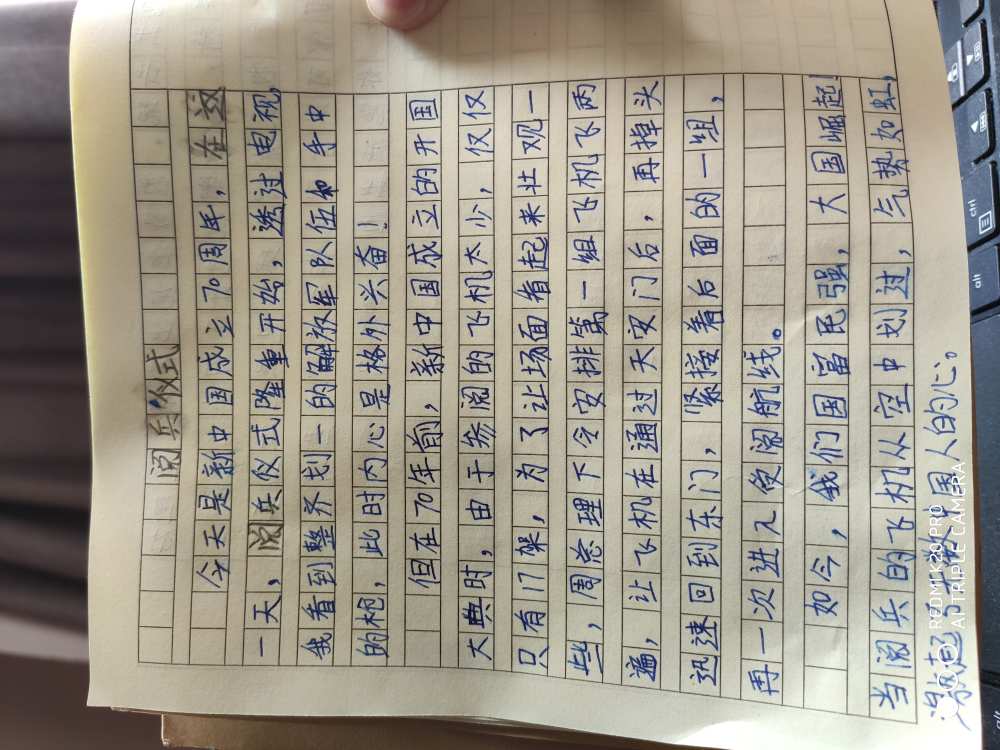 阅兵仪式
今天是新中国成立70周年,在这
一天,阅兵仪式隆重开始,透过电视
我看到整齐划一的解放军队伍和手中
的枪,此时内心是格外兴奋!
但在70年前,新中国成立的开国
大典时,由于参阅的飞机太少,仅仅
只有17架,为了让场面看起来壮观一
些,周总理下令安排第一组飞机飞两
遍,让飞机在通过天安门后,再掉头
迅速回到东门,紧接着后面的一组,
再一次进入受阅航线。
如今,我们国富民强,大国崛起!
当阅兵的飞机从空中划过,气势如虹,
激起了无数中国人的心。
REDMI K20 PRO
AI TRIPLE CAMERA
ctrl
alt
alt